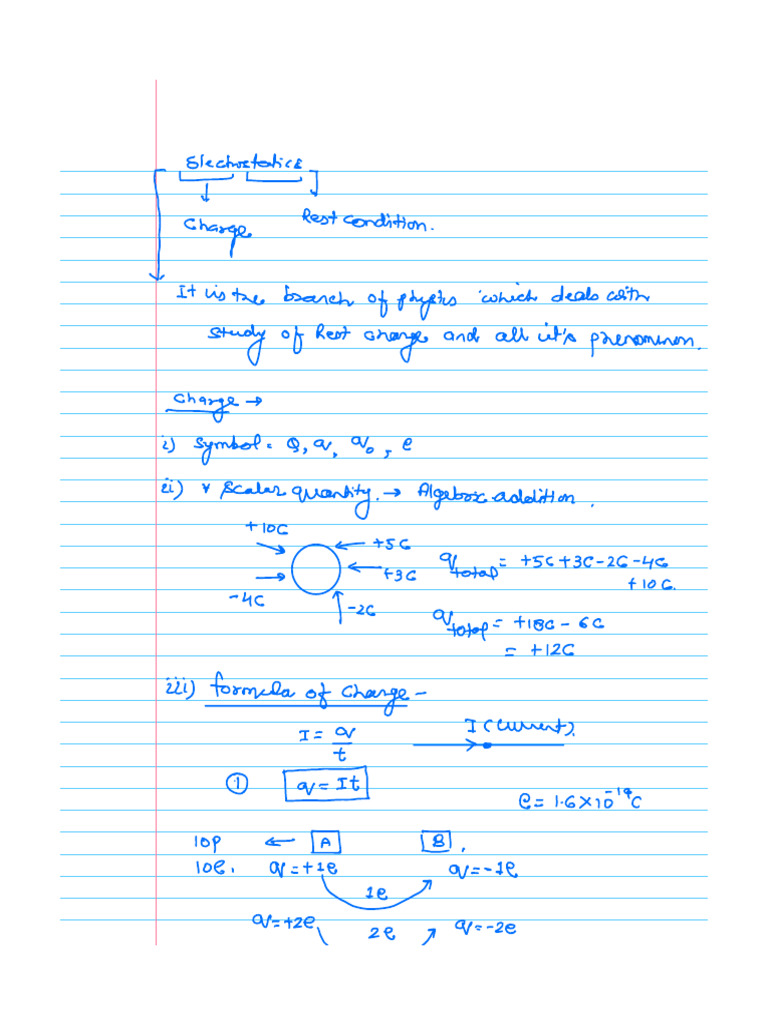 Electrostatics
Charge Rest condition.
It is the branch of physics which deals with
study of Rest charge and all it's phenominon.
Charge →
i) Symbol = Q, q, q₀, e
ii) Scalar quantity. → Algebric addition.
+10C
+5C
+3C
-4C
-2C
q total = +5C+3C-2C-4C
+10C.
q total = +18C - 6C
= +12C
iii) formula of charge -
I = q/t I (current).
① q = It
e = 1.6×10⁻¹⁹C
10p ← A B.
10e. q=+1e q=-1e
1e
q=+2e 2e q=-2e